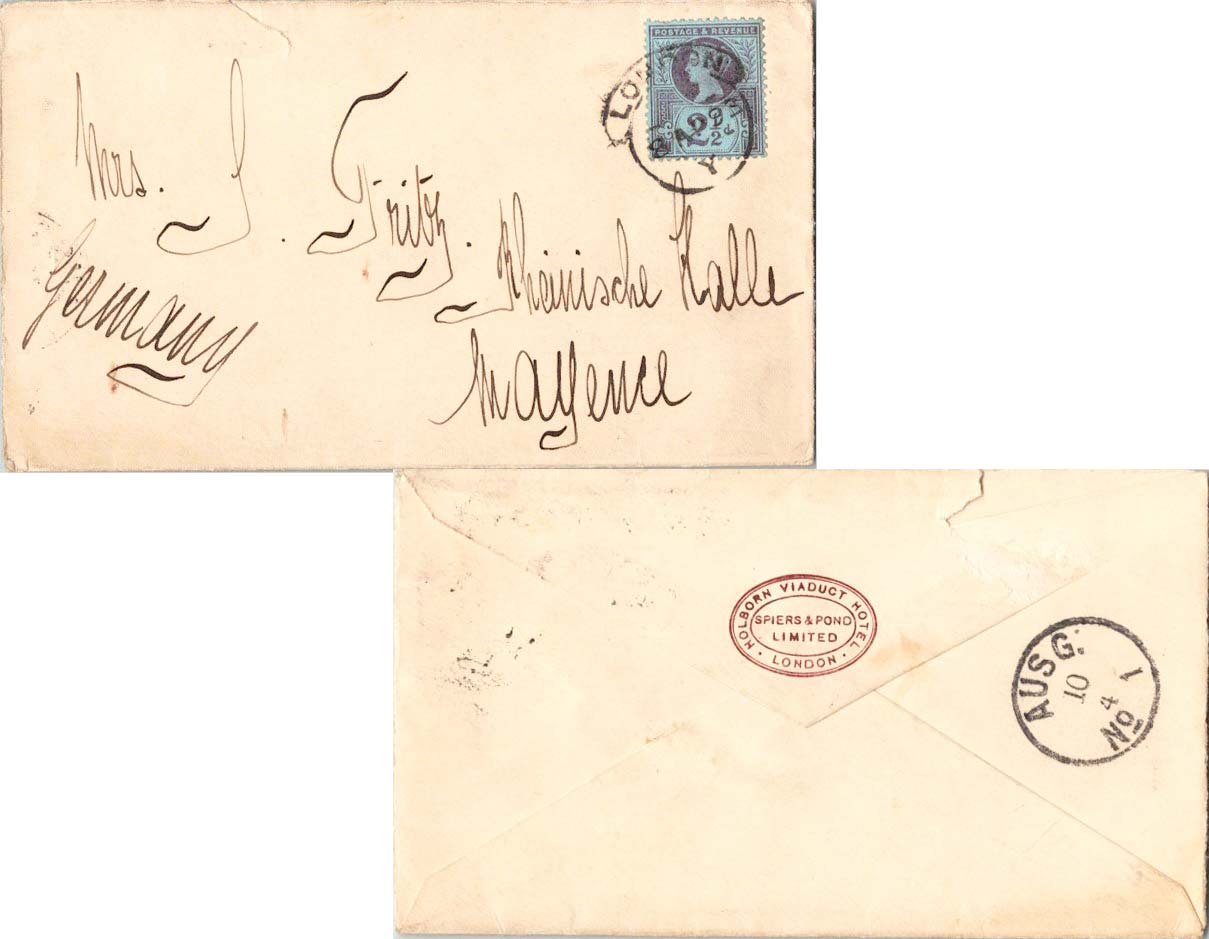 POSTAGE & REVENUE
2½d
LONDON
Mrs. S. Fritz.
Rheinische Halle
Mayence
Germany
HOLBORN VIADUCT HOTEL
SPIERS & POND
LIMITED
· LONDON ·
AUSG.
10
4
No 1